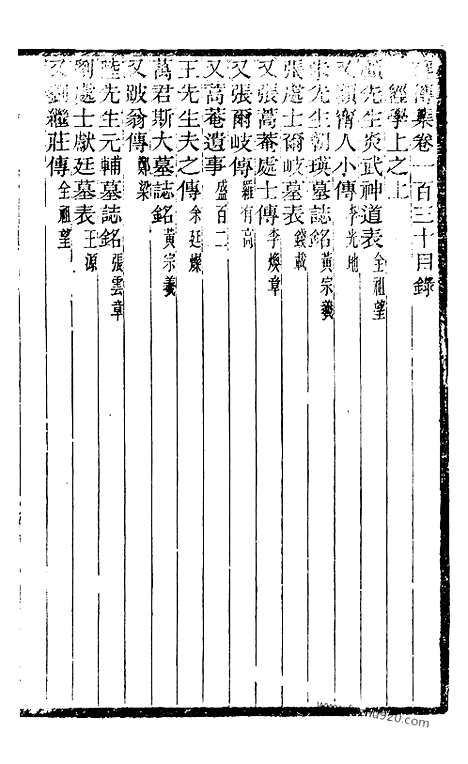 碑傳集卷一百三十目錄
經學上之上
顧先生炎武神道表 全祖望
又顧甯人小傳 李光地
朱先生朝瑛墓誌銘 黃宗羲
張處士爾岐墓表 錢載
又張蒿菴處士傳 李煥章
又張爾岐傳 羅有高
又蒿菴遺事 盛百二
王先生夫之傳 余廷燦
萬君斯大墓誌銘 黃宗羲
又跛翁傳 鄭梁
陸先生元輔墓誌銘 張雲章
劉處士獻廷墓表 王源
又劉繼莊傳 全祖望